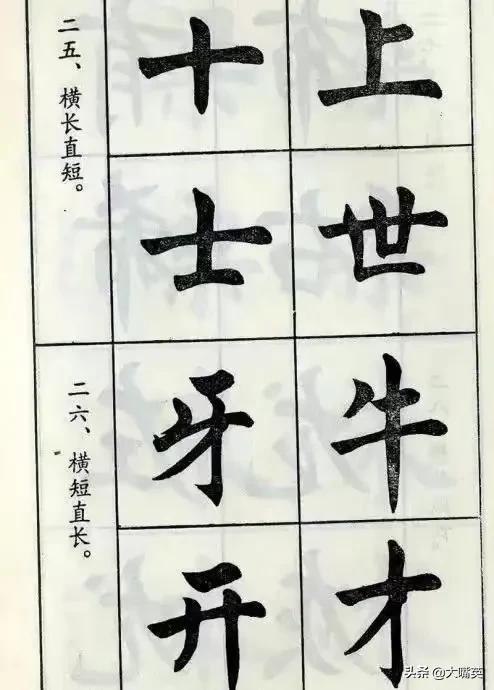 二五、横长直短。
十上
士世
二六、横短直长。
牙牛
开才
头条@大嘴英